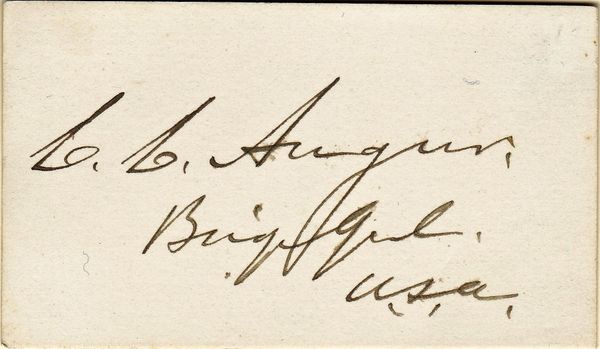 C. C. Augur.
Brig. Genl.
U.S.A.